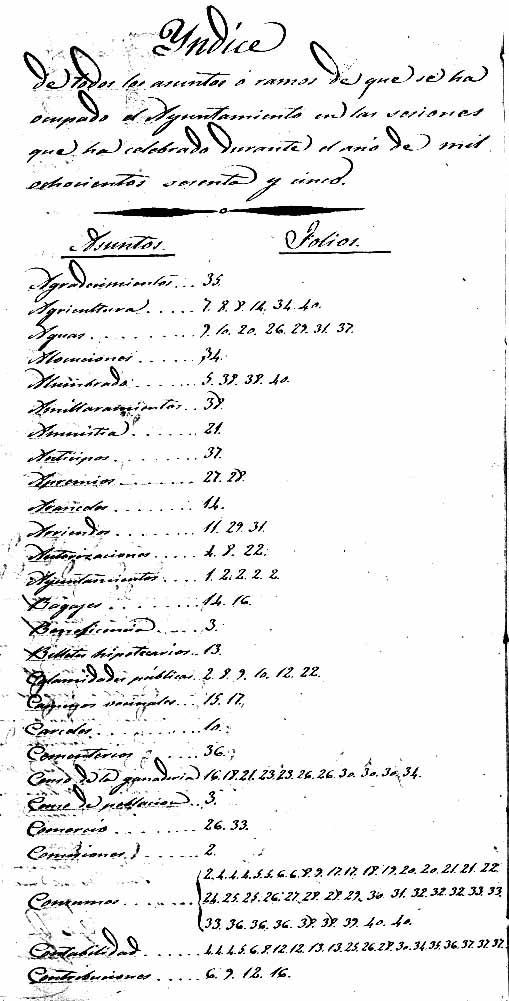 Yndice
de todos los asuntos ó ramos de que se ha
ocupado el Ayuntamiento en las sesiones
que ha celebrado durante el año de mil
ochocientos sesenta y cinco.
Asuntos. Folios.
Agradecimientos... 35.
Agricultura..... 7. 8. 8. 14. 34. 40.
Aguas......... 9. 10. 20. 26. 29. 31. 37.
Alocuciones...... 34.
Alumbrado....... 5. 38. 38. 40.
Amillaramientos.. 38.
Amnistia........ 21.
Anticipos........ 37.
Apremios....... 27. 28.
Aranceles....... 14.
Arriendos....... 11. 29. 31.
Autorizaciones..... 4. 8. 22.
Ayuntamientos.... 1. 2. 2. 2. 2.
Bagajes......... 14. 16.
Beneficencia..... 3.
Billetes hipotecarios.. 13.
Calamidades públicas. 2. 8. 9. 10. 12. 22.
Caminos vecinales... 15. 17.
Carceles.......... 10.
Cementerios...... 36.
Censo de la ganaderia 16. 18. 21. 23. 23. 26. 26. 30. 30. 30. 34.
Censo de poblacion.. 3.
Comercio........ 26. 33.
Comisiones...... 2.
2. 4. 4. 4. 5. 5. 6. 6. 8. 9. 17. 17. 18. 19. 20. 20. 21. 21. 22.
Consumos....... 24. 25. 25. 26. 27. 28. 28. 29. 30. 31. 32. 32. 32. 33. 33.
33. 36. 36. 36. 38. 38. 39. 40. 40.
Contabilidad..... 4. 4. 4. 5. 6. 8. 12. 12. 13. 13. 25. 26. 28. 30. 34. 35. 36. 37. 37. 37.
Contribuciones.... 6. 9. 12. 16.